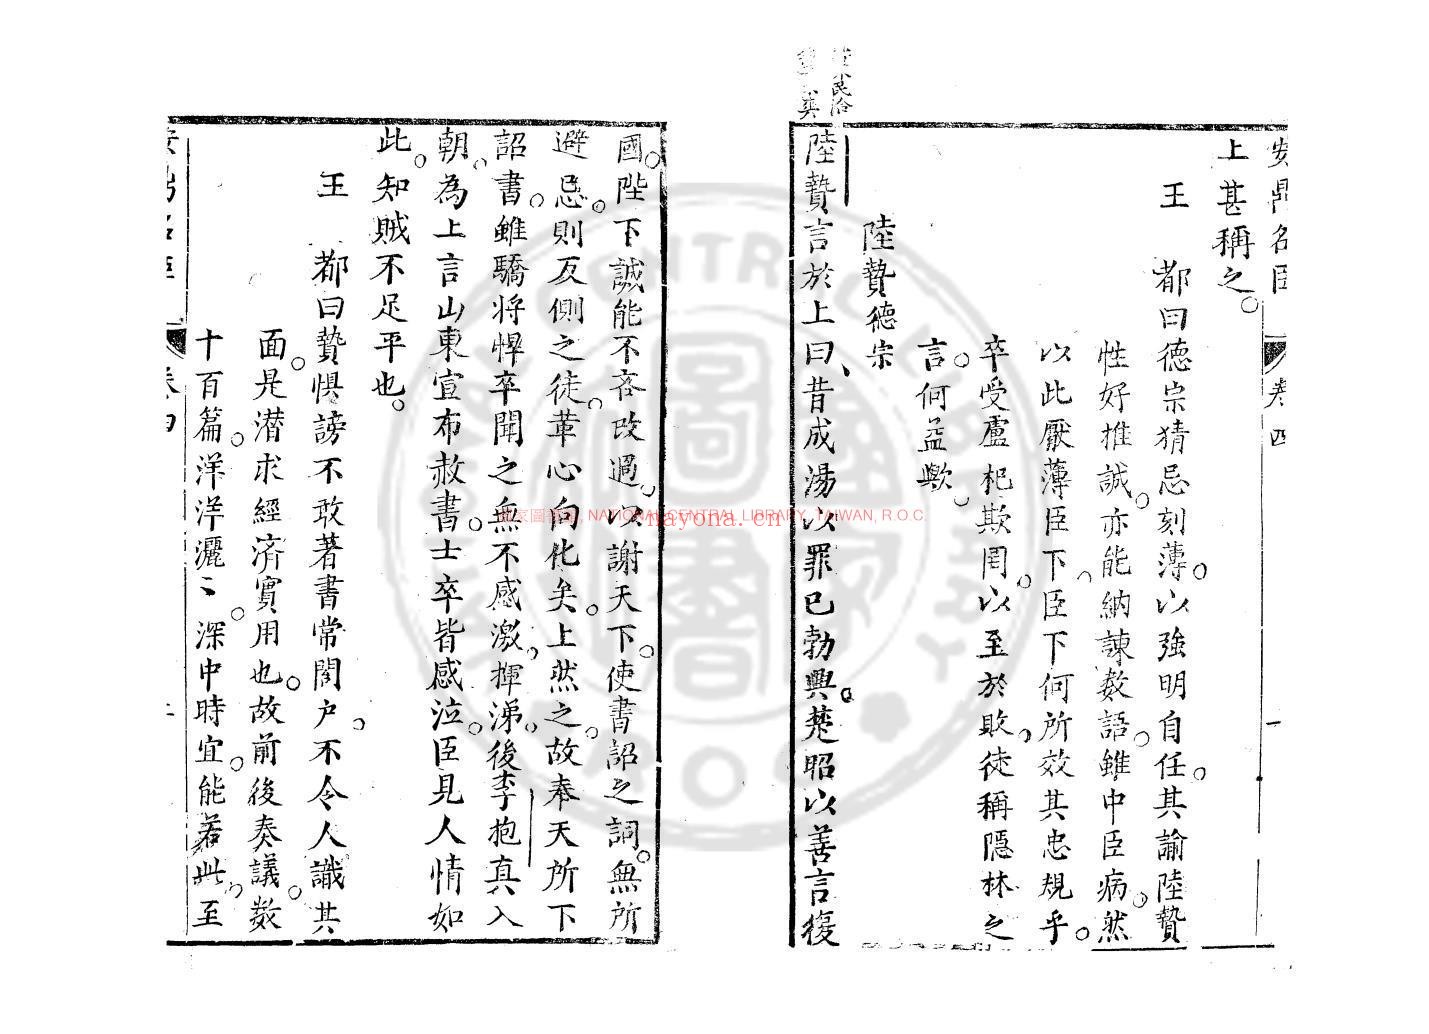 安昌名臣
卷四
一
上甚稱之
王　都曰德宗猜忌刻薄以強明自任其諭陸贄
性好推誠亦能納諫數語雖中臣病然
以此厭薄臣下臣下何所效其忠規乎
卒受盧杞欺罔以至於敗徒稱隱林之
言何益歟
陸贄德宗
陸贄言於上曰昔成湯以罪已勃興楚昭以善言復
國陛下誠能不吝改過以謝天下使書詔之詞無所
避忌則反側之徒革心向化矣上然之故奉天所下
詔書雖驕將悍卒聞之無不感激揮涕後李抱真入
朝為上言山東宣布赦書士卒皆感泣臣見人情如
此知賊不足平也
王　都曰贄懼謗不敢著書常閤户不令人識其
面是潜求經济實用也故前後奏議數
十百篇洋洋灑〻深中時宜能若此至
卷四
國家圖書館, NATIONAL CENTRAL LIBRARY, TAIWAN, R.O.C.
nayona.cn
NATIONAL CENTRAL LIBRARY